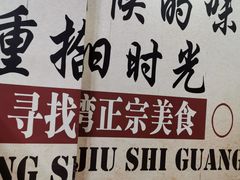 候的味
重拾旧时光
寻找 湾正宗美食
NG S JIU SHI GUANG